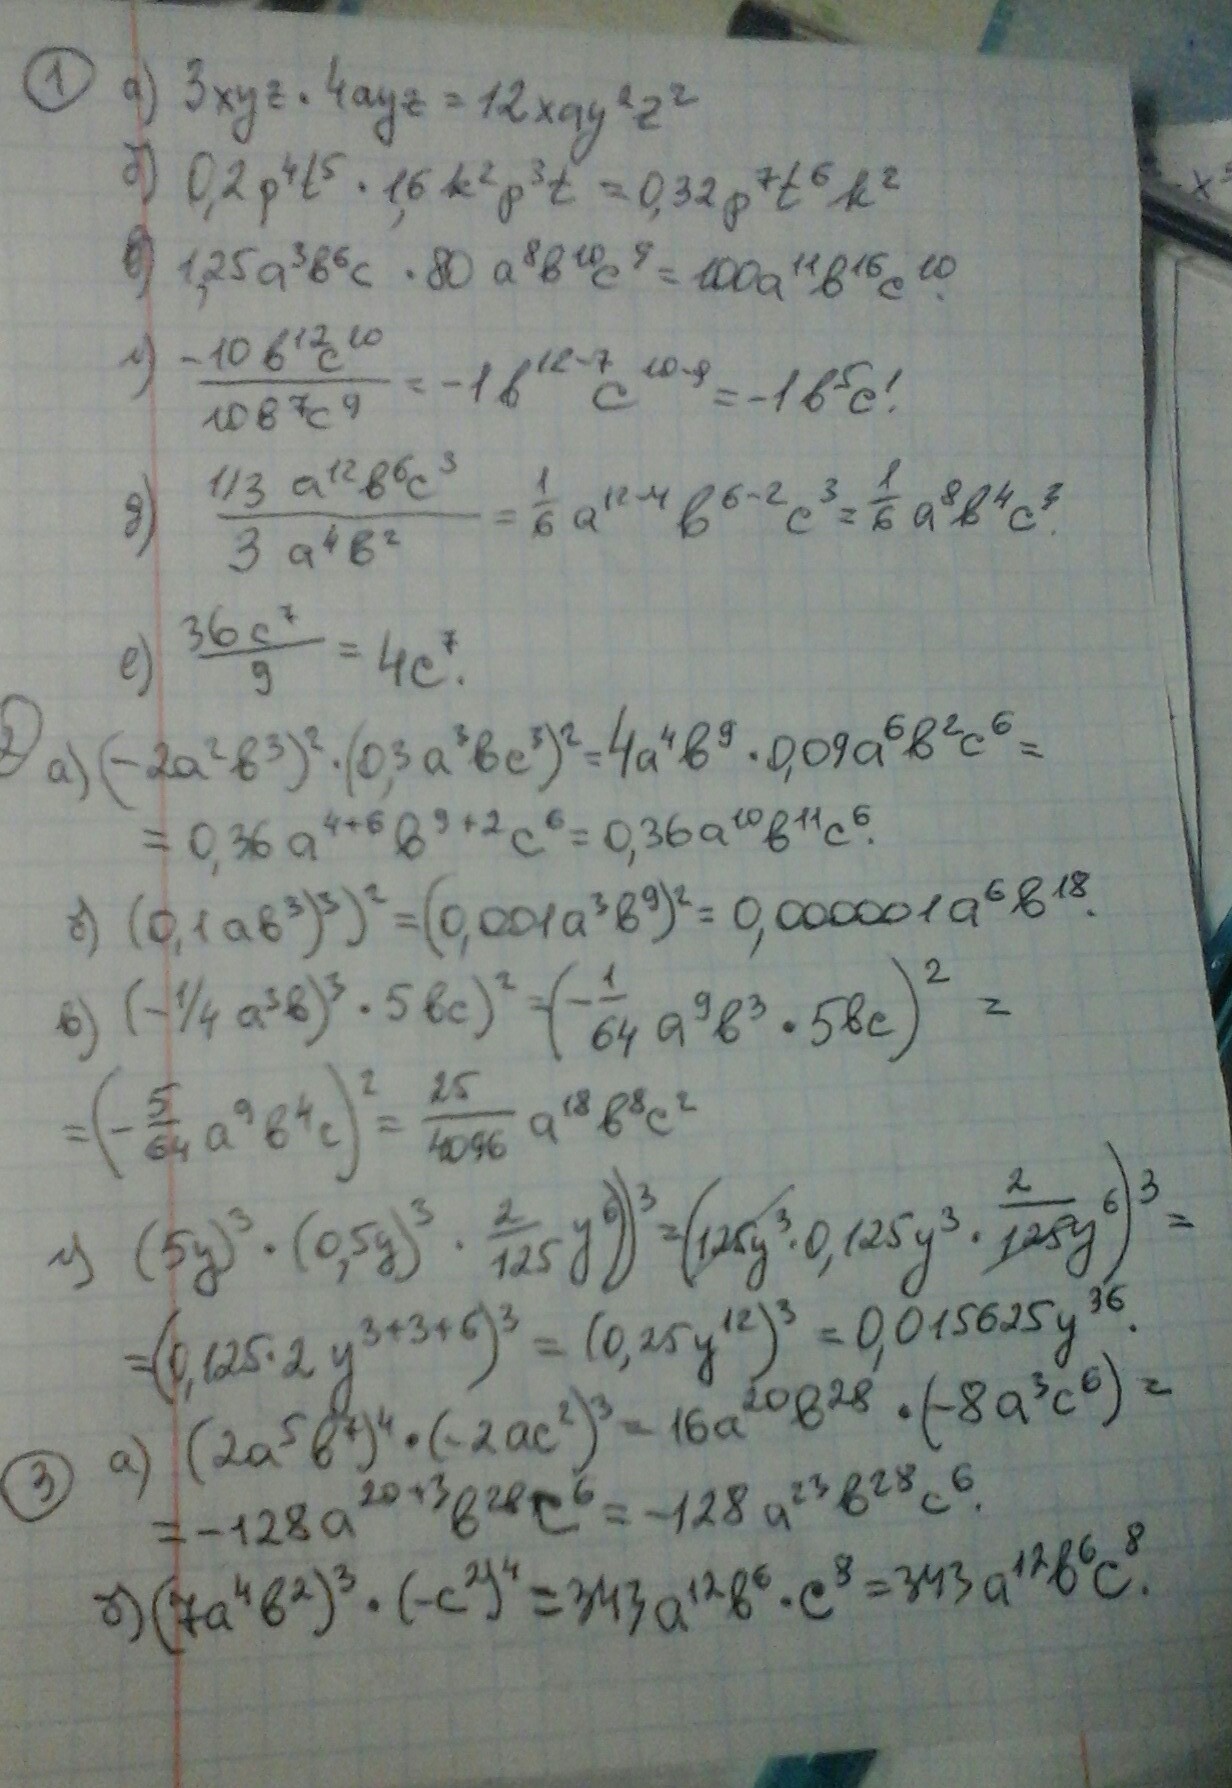 1 а) 3xyz · 4ayz = 12xay²z²
б) 0,2p⁴t⁵ · 1,6k²p³t = 0,32p⁷t⁶k²
в) 1,25a³b⁶c · 80 a⁸b¹⁰c⁹ = 100a¹¹b¹⁶c¹⁰.
г) -10b¹²c¹⁰ / 10b⁷c⁹ = -1b¹²⁻⁷c¹⁰⁻⁹ = -1b⁵c¹.
д) 1/3 a¹²b⁶c³ / 3 a⁴b² = 1/6 a¹²⁻⁴b⁶⁻²c³ = 1/6 a⁸b⁴c³.
е) 36c⁷ / 9 = 4c⁷.
2 а) (-2a²b³)² · (0,3a³bc³)² = 4a⁴b⁹ · 0,09a⁶b²c⁶ =
= 0,36a⁴⁺⁶b⁹⁺²c⁶ = 0,36a¹⁰b¹¹c⁶.
б) (0,1ab³)³)² = (0,001a³b⁹)² = 0,000001a⁶b¹⁸.
в) (-1/4 a³b)³ · 5bc)² = (-1/64 a⁹b³ · 5bc)² =
= (-5/64 a⁹b⁴c)² = 25/4096 a¹⁸b⁸c²
г) (5y)³ · (0,5y)³ · 2/125 y⁶)³ = (125y³ · 0,125y³ · 2/125 y⁶)³ =
= (0,125·2y³⁺³⁺⁶)³ = (0,25y¹²)³ = 0,015625y³⁶.
3 а) (2a⁵b⁷)⁴ · (-2ac²)³ = 16a²⁰b²⁸ · (-8a³c⁶) =
= -128a²⁰⁺³b²⁸c⁶ = -128a²³b²⁸c⁶.
б) (7a⁴b²)³ · (-c²)⁴ = 343a¹²b⁶ · c⁸ = 343a¹²b⁶c⁸.